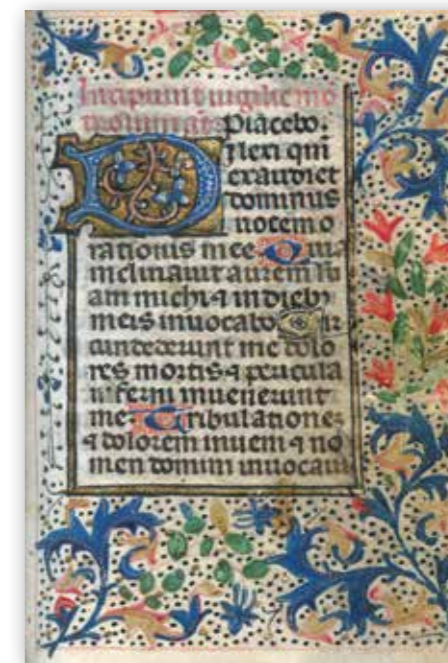 Incipiunt uigilie mo
Placebo.
Dilexi qm
exaudiet
dominus
uocem o
rationis mee Quia
inclinauit aurem su
am michi ⁊ in dieb⁹
meis inuocabo Cir
cundederunt me dolo
res mortis ⁊ pericula
inferni inuenerunt
me Tribulationez
⁊ dolorem inueni ⁊ no
men domini inuocaui